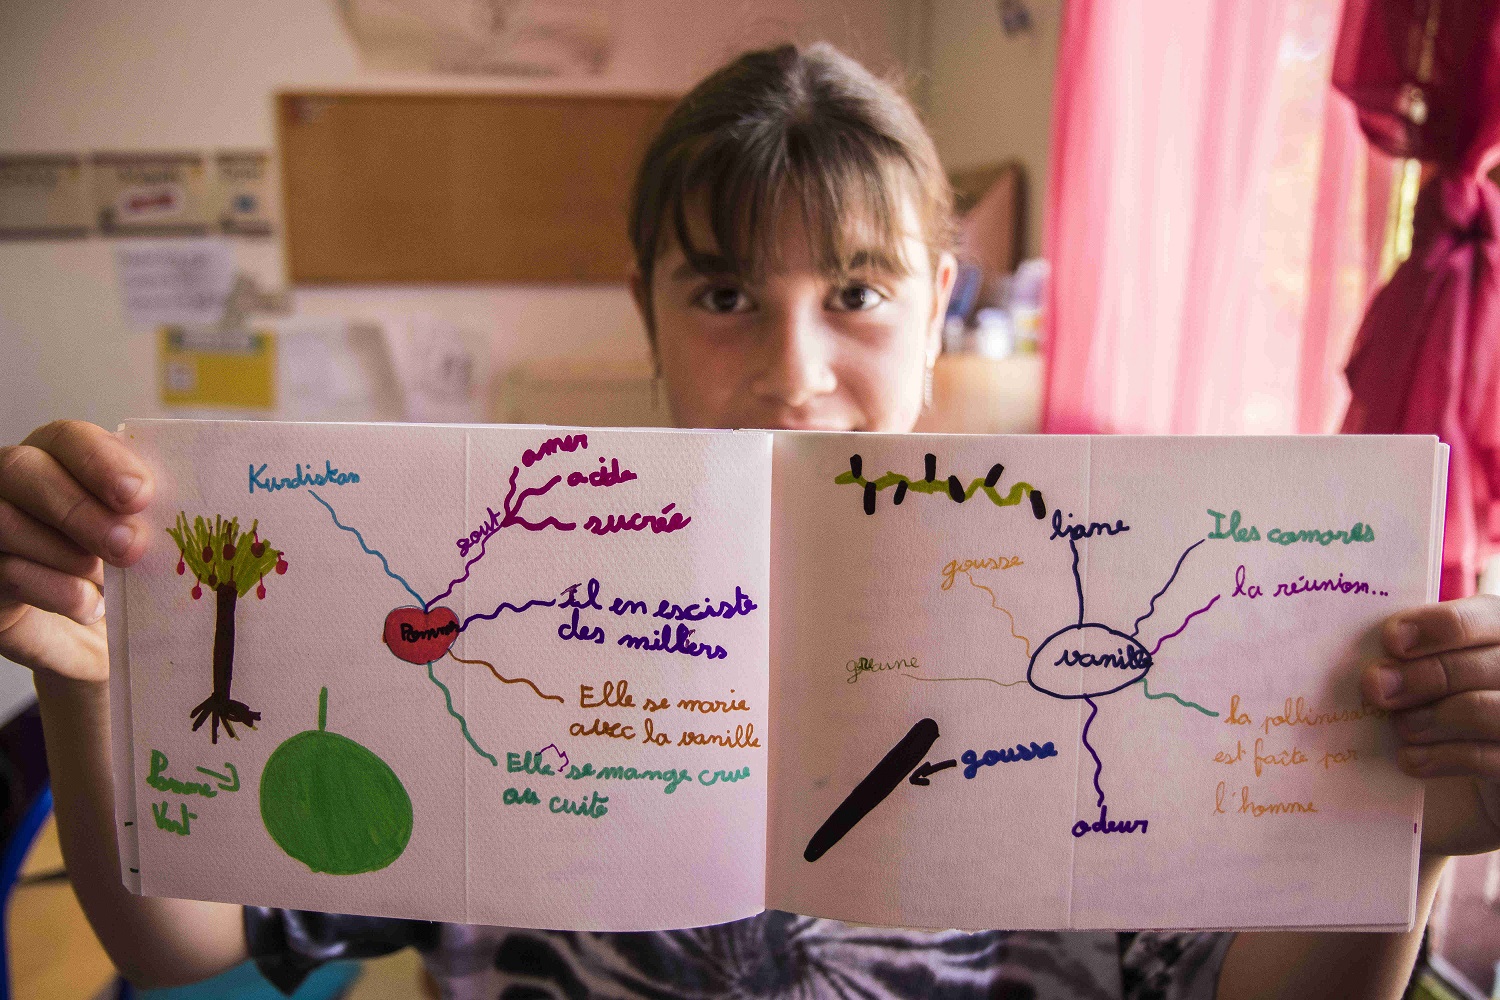 Kurdistan
gout
amer
acide
sucrée
Pomme
Il en esciste
des milliers
Elle se marie
avec la vanille
Elle se mange crue
au cuite
Pomme
Vert
liane
gousse
graine
vanille
Iles comores
la réunion...
la pollinisat
est faîte par
l'homme
gousse
odeur